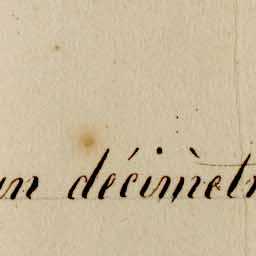 un décimètr